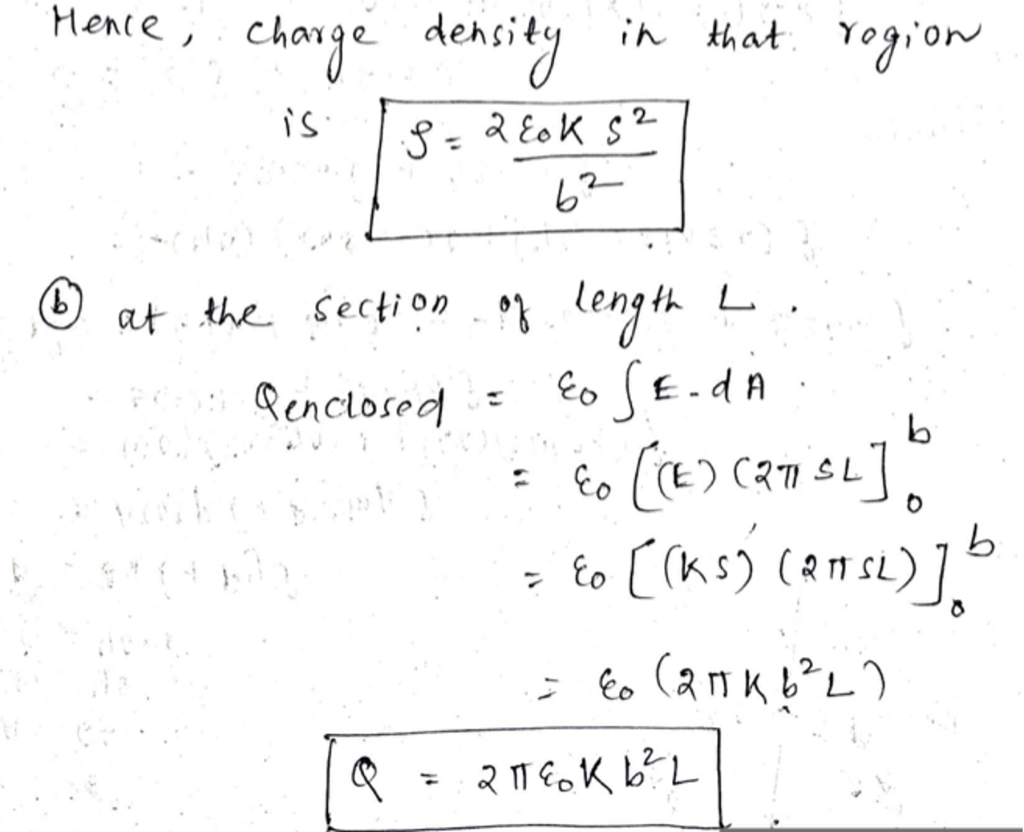 Hence, charge density in that region
is ρ = 2 ε0 K s² / b²
ⓑ at the section of length L.
Qenclosed = ε0 ∫ E.dA
= ε0 [(E) (2π SL]₀ᵇ
= ε0 [(KS) (2πSL)]₀ᵇ
= ε0 (2πK b²L)
Q = 2πε0K b²L